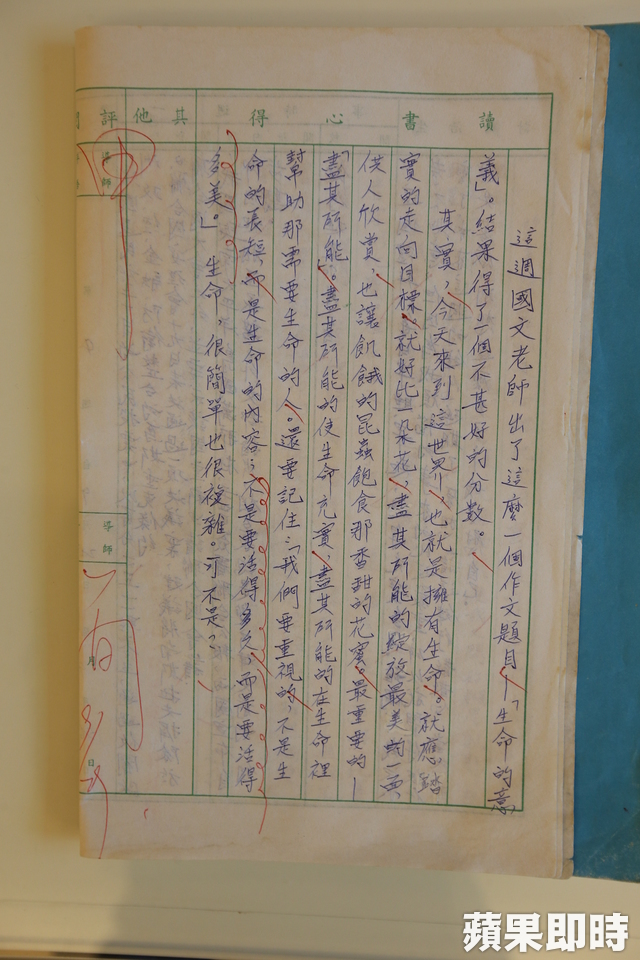 讀書心得
其他
評閱
這週國文老師出了這麼一個作文題目—「生命的意
義」。結果得了一個不甚好的分數。
其實，今天來到這世界，也就是擁有生命。就應踏
實的走向目標。就好比一朵花，盡其所能的綻放最美的一面
供人欣賞，也讓飢餓的昆蟲飽食那香甜的花蜜，最重要的—
「盡其所能」。盡其所能的使生命充實，盡其所能的在生命裡
幫助那需要生命的人。還要記住：「我們要重視的，不是生
命的長短，而是生命的內容；不是要活得多久，而是要活得
多美。」生命，很簡單也很複雜。可不是？
導師
導師
月
日
蘋果即時